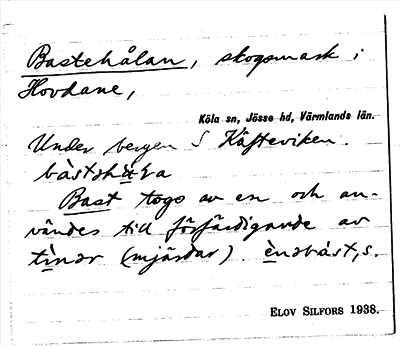 Bastehålan, skogsmark i
Hovdane,
Köla sn, Jösse hd, Värmlands län.
Under bergen S Käfteviken.
bàstshä̀ɽa
Bast togs av en och an-
vändes till förfärdigande av
tìnər (mjärdar). ènəbást, s.
ELOV SILFORS 1938.